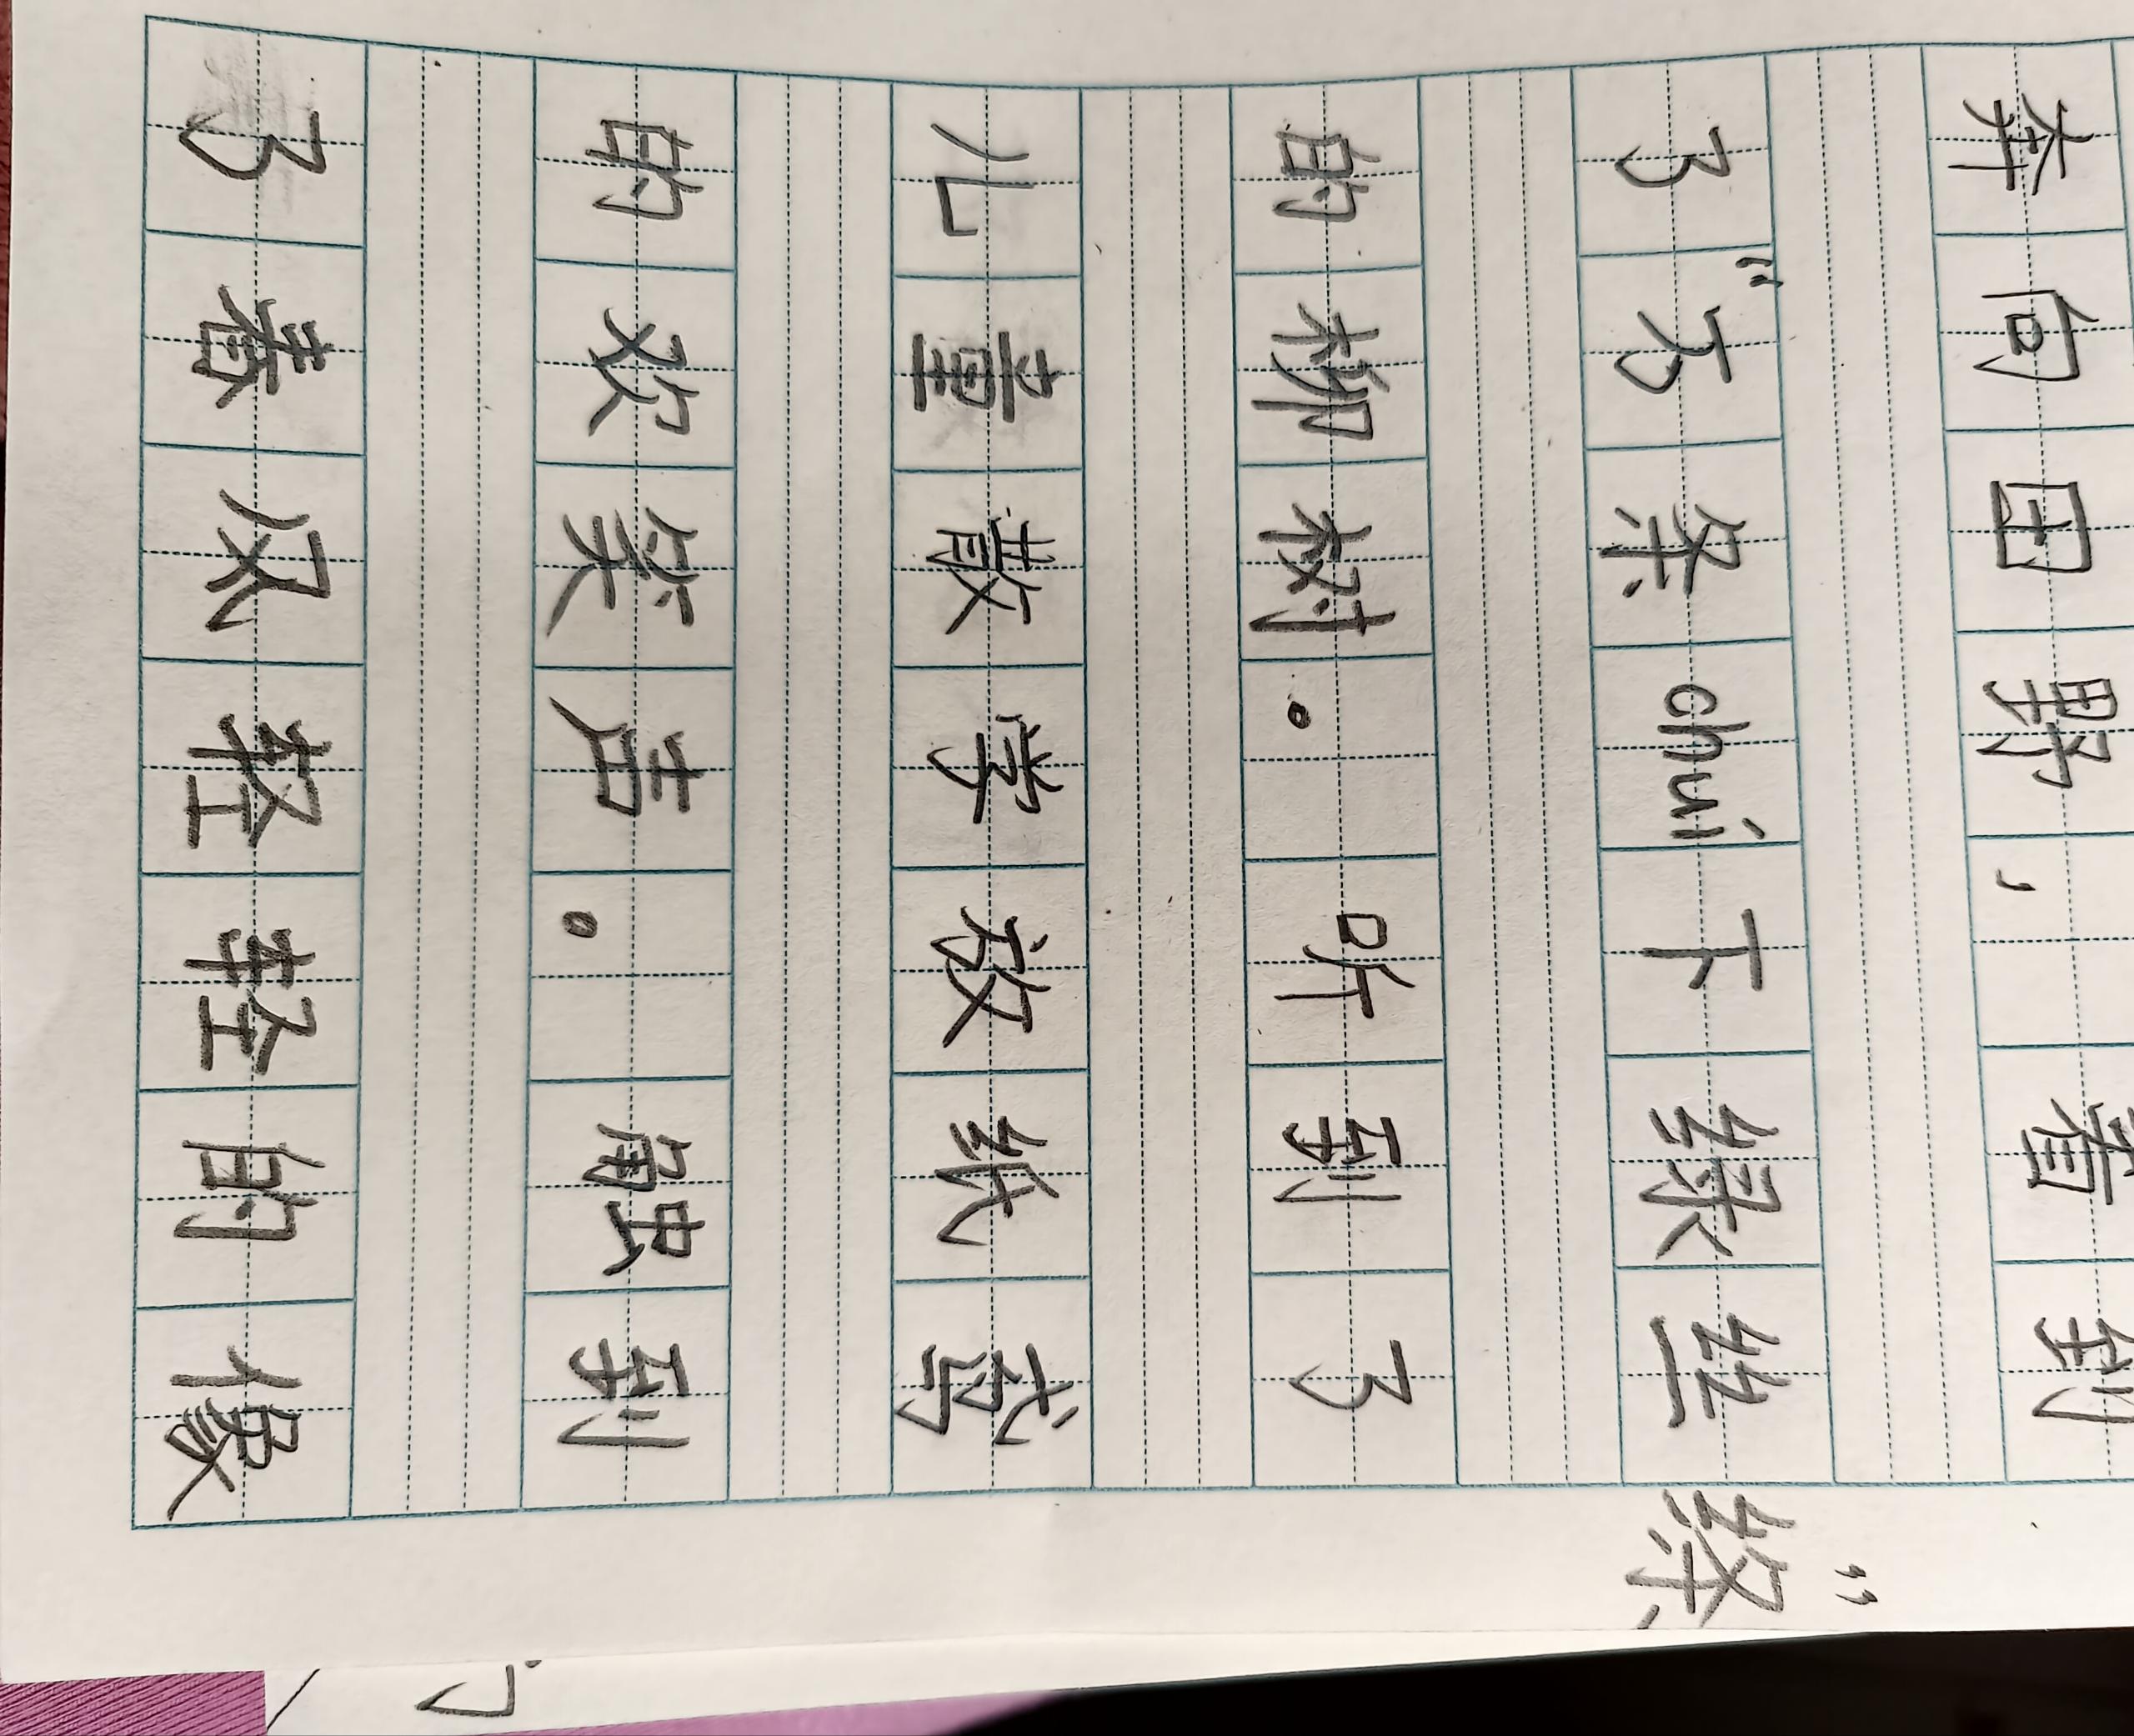 奔向田野，看到
了“万条chui下绿丝绦”
的柳树。听到了
儿童散学放纸鸢
的欢笑声。触到
了春风轻轻的像